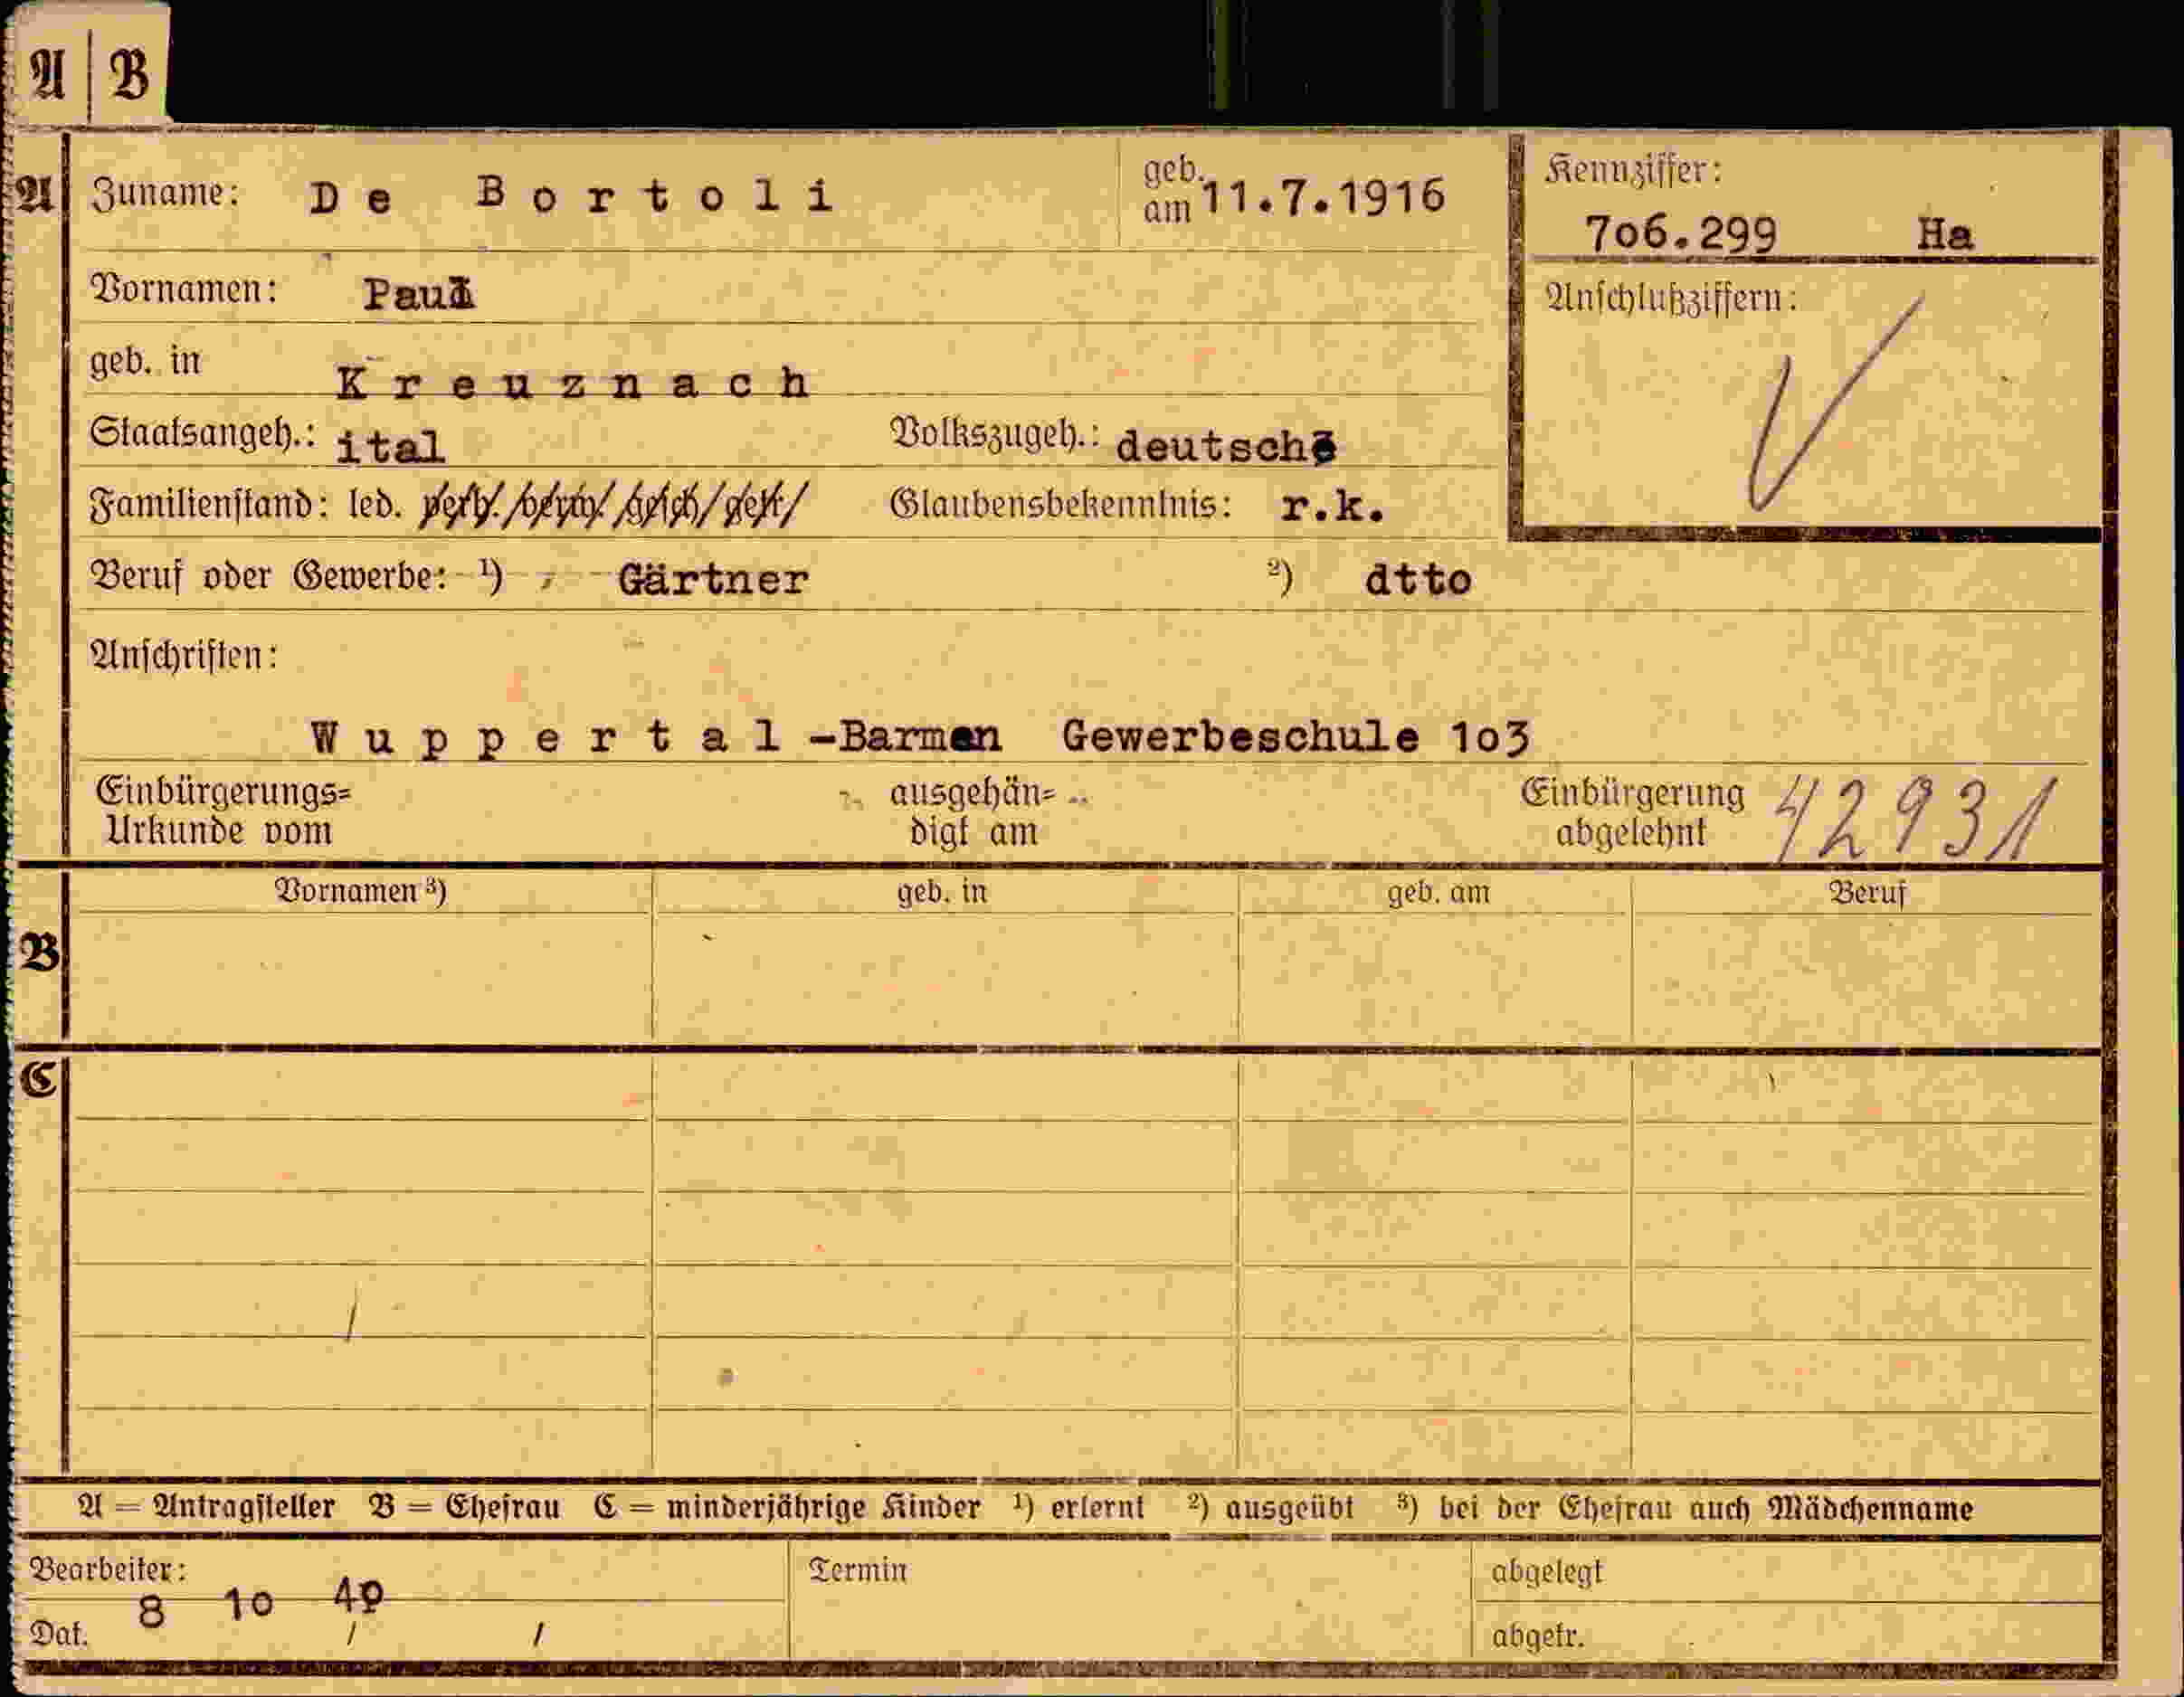 A B
A Zuname: De Bortoli geb. am 11.7.1916 Kennziffer:
7o6.299 Ha
Vornamen: Paul Anschlußziffern:
geb. in Kreuznach
Staatsangeh.: ital Volkszugeh.: deutsche
Familienstand: led. verh./verw./gesch/getr/ Glaubensbekenntnis: r.k.
Beruf oder Gewerbe: ¹) Gärtner ²) dtto
Anschriften:
Wuppertal-Barmen Gewerbeschule 1o3
Einbürgerungs= ausgehän= Einbürgerung 42931
Urkunde vom digt am abgelehnt
Vornamen ³) geb. in geb. am Beruf
B
C
A = Antragsteller B = Ehefrau C = minderjährige Kinder ¹) erlernt ²) ausgeübt ³) bei der Ehefrau auch Mädchenname
Bearbeiter: Termin abgelegt
8 1o 4o
Dat. abgetr.